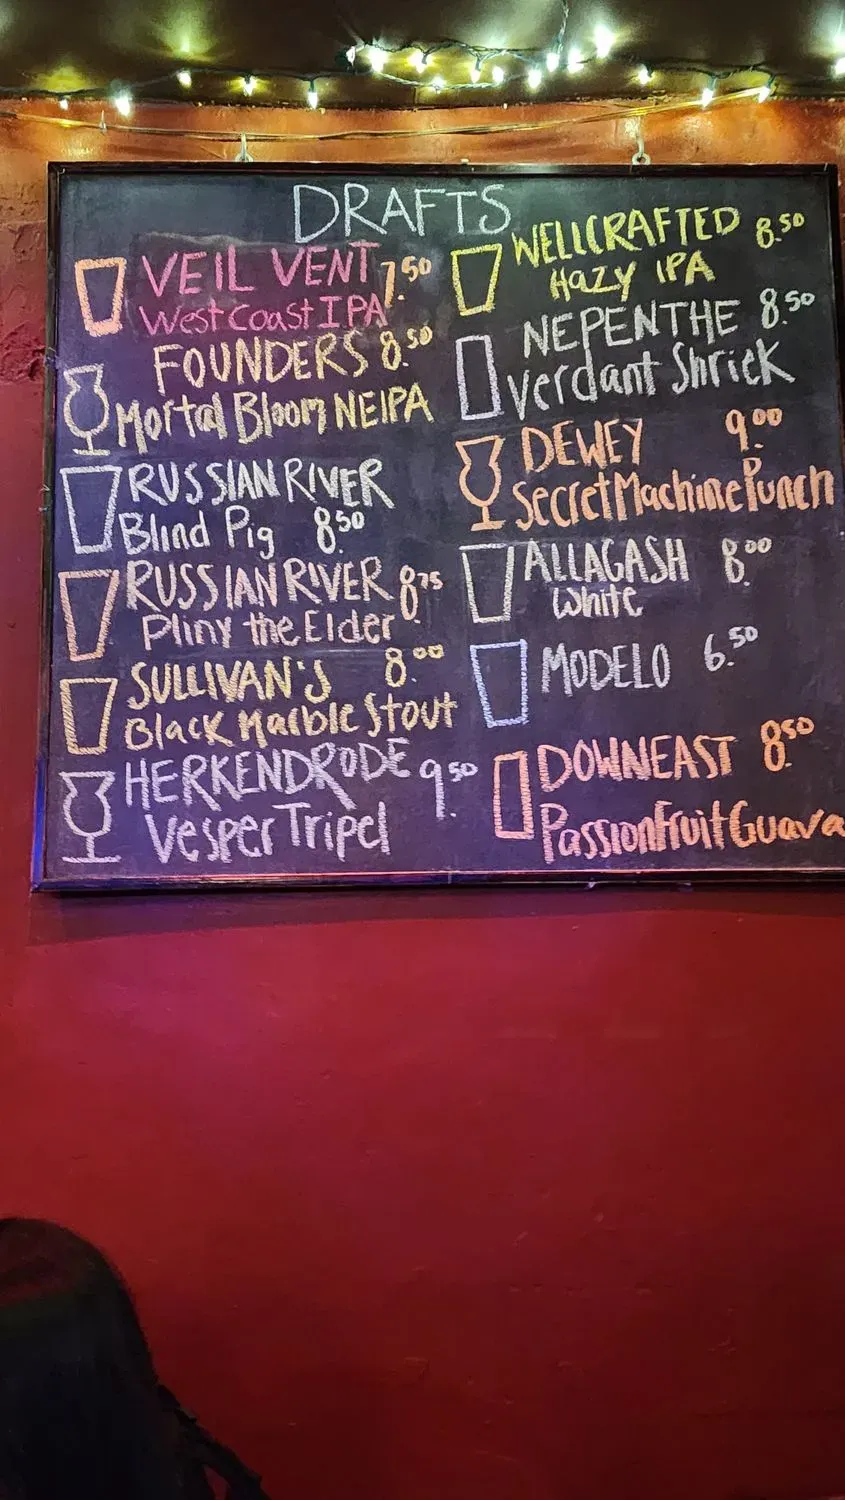 DRAFTS
VEIL VENT 7.50
West Coast IPA
FOUNDERS 8.50
Mortal Bloom NEIPA
RUSSIAN RIVER
Blind Pig 8.50
RUSSIAN RIVER 8.75
Pliny the Elder
SULLIVAN'S 8.00
Black Marble Stout
HERKENDRODE 9.50
Vesper Tripel
WELLCRAFTED 8.50
Hazy IPA
NEPENTHE 8.50
Verdant Shriek
DEWEY 9.00
Secret Machine Punch
ALLAGASH 8.00
White
MODELO 6.50
DOWNEAST 8.50
Passion Fruit Guava